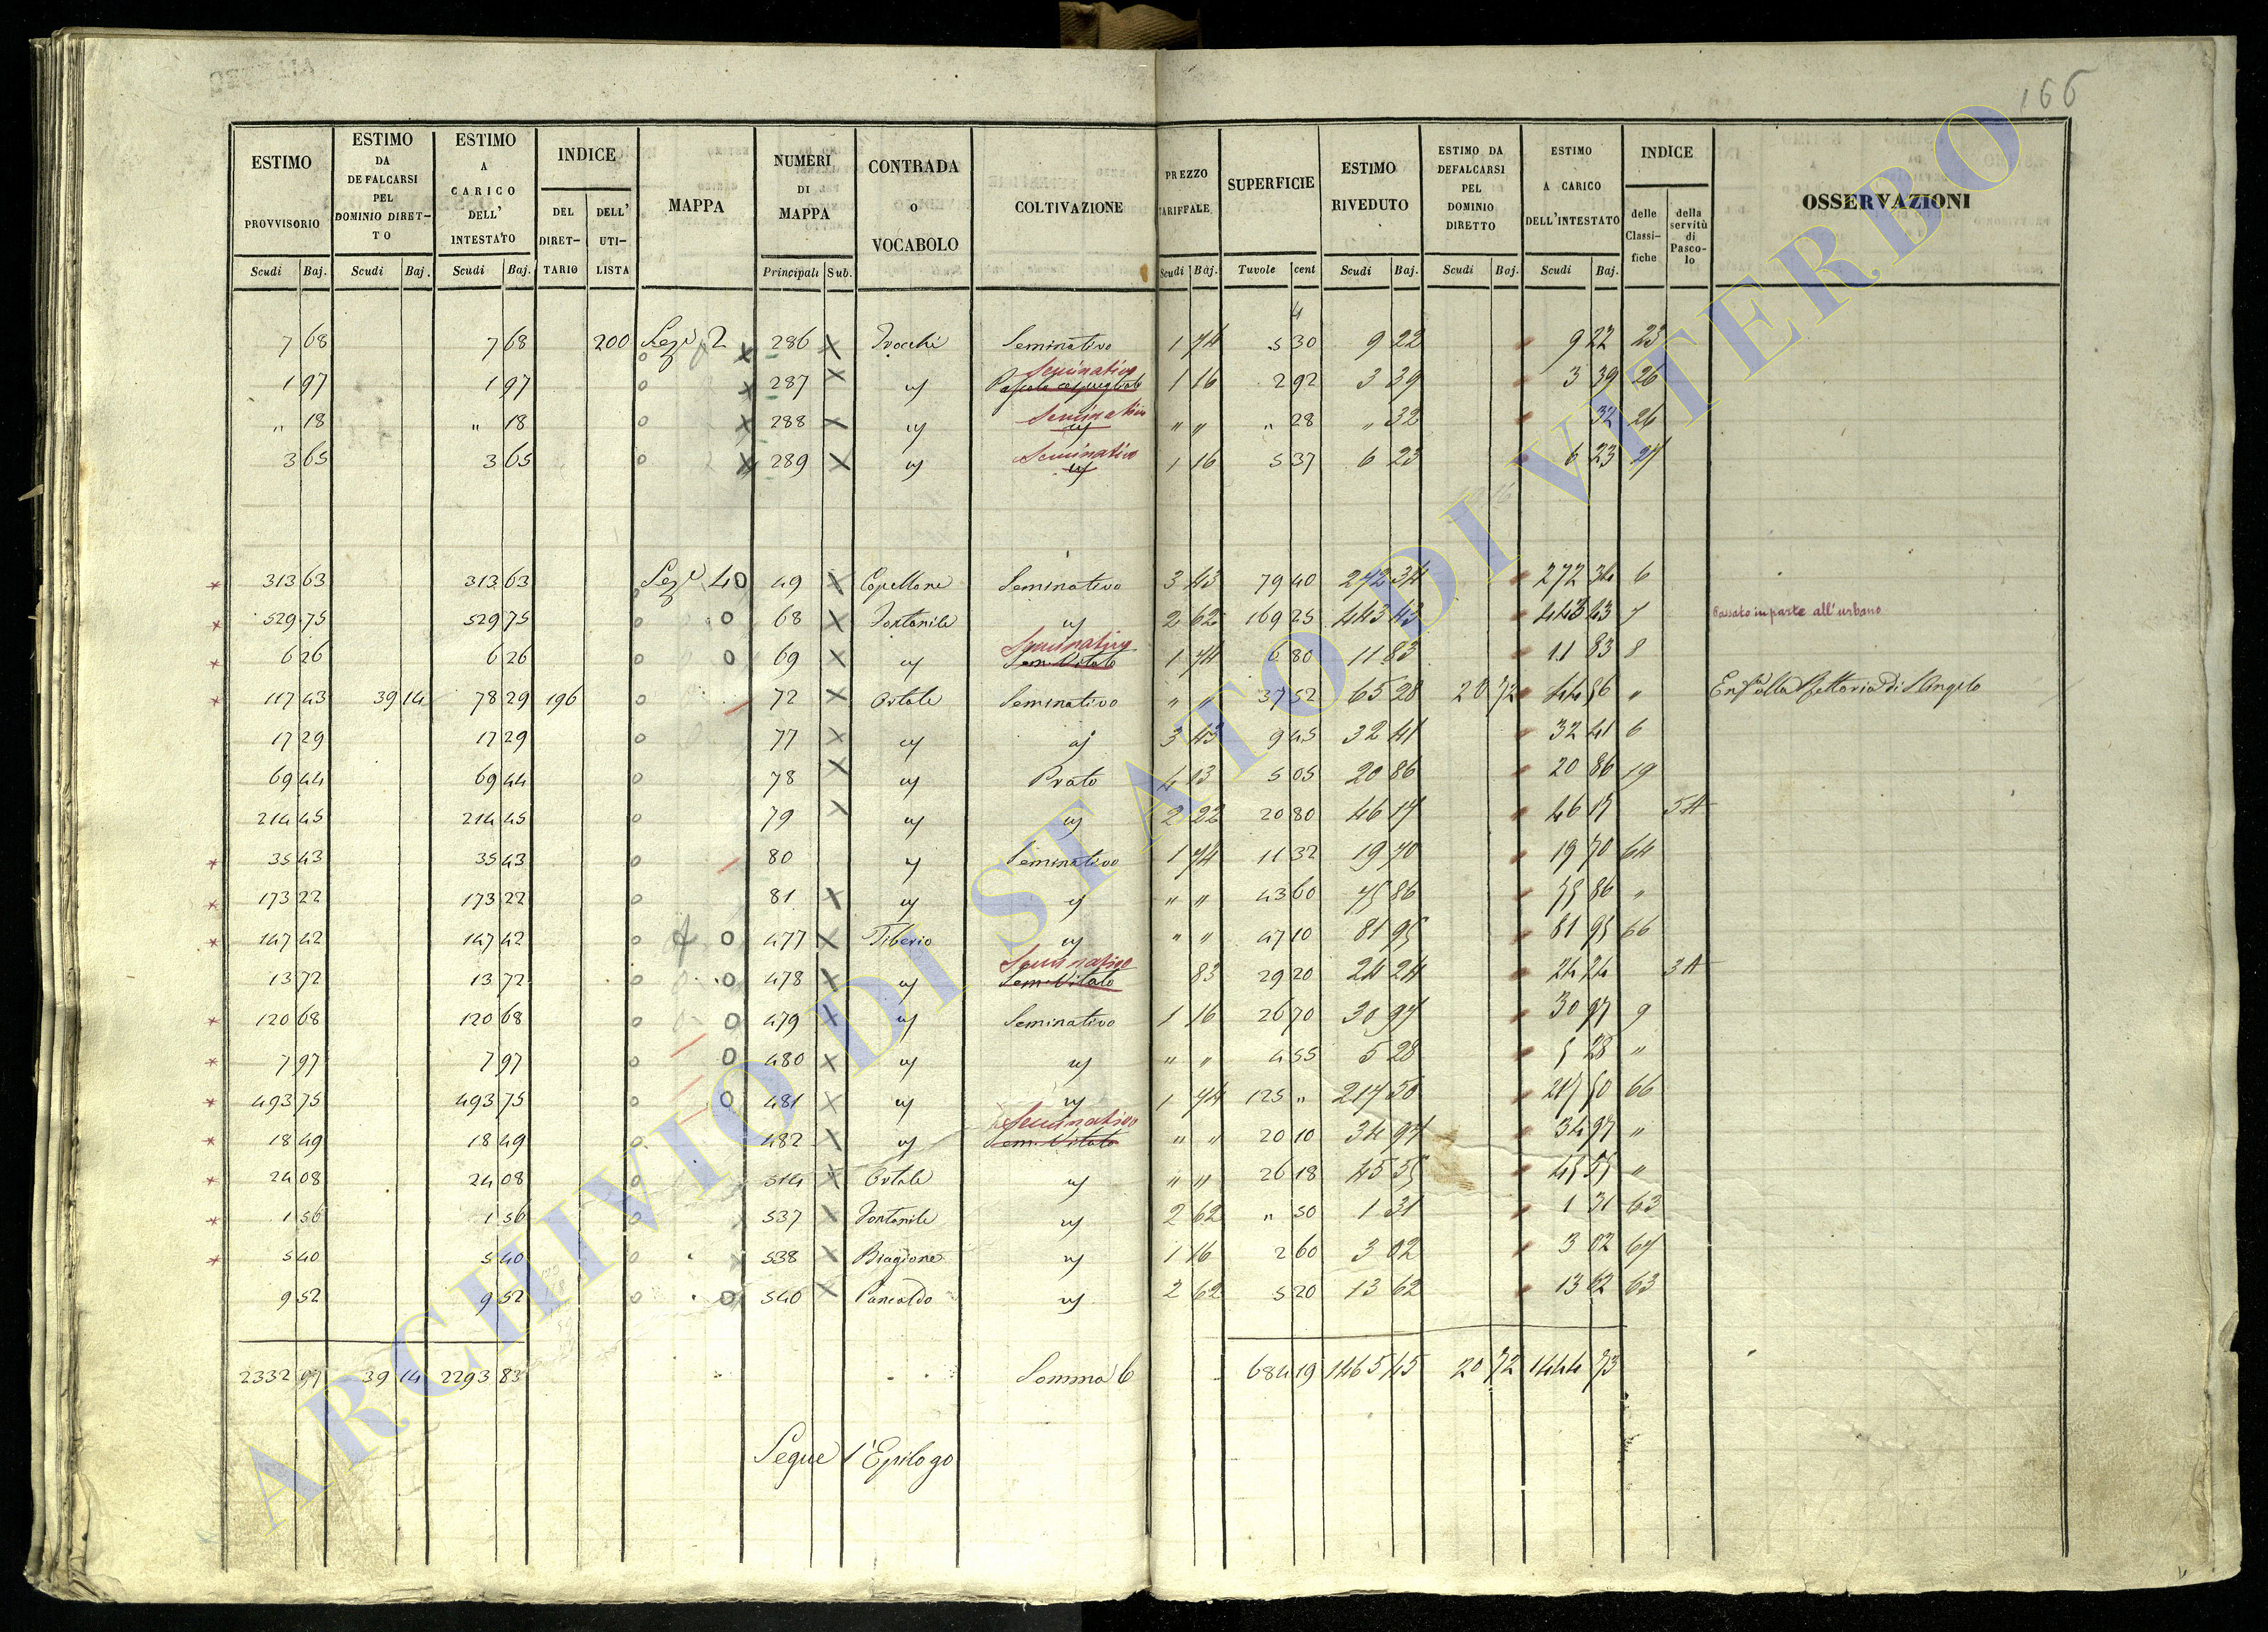 166
ESTIMO PROVVISORIO Scudi Baj. | ESTIMO DA DEFALCARSI PEL DOMINIO DIRETTO Scudi Baj. | ESTIMO A CARICO DELL' INTESTATO Scudi Baj. | INDICE DEL DIRETTARIO DELL' UTILISTA | MAPPA | NUMERI DI MAPPA Principali Sub. | CONTRADA O VOCABOLO | COLTIVAZIONE | PREZZO TARIFFALE Scudi Baj. | SUPERFICIE Tavole cent | ESTIMO RIVEDUTO Scudi Baj. | ESTIMO DA DEFALCARSI PEL DOMINIO DIRETTO Scudi Baj. | ESTIMO A CARICO DELL'INTESTATO Scudi Baj. | INDICE delle Classifiche della servitù di Pascolo | OSSERVAZIONI
7 68 7 68 200 Sez.e 2 286 Seminativo 1 74 5 30 9 22 9 22 23
1 97 1 97 287 " Seminativo Pascolo cespugliato 1 16 2 92 3 39 3 39 26
" 18 " 18 288 " Seminativo " " " " 28 " 32 32 26
3 65 3 65 289 " Seminativo " 1 16 5 37 6 23 6 23 27
313 63 313 63 Sez.e 4 0 49 Capellone Seminativo 3 43 79 40 272 34 272 34 6
529 75 529 75 0 68 Fontanile " 2 62 169 25 443 43 443 43 7 Passato in parte all'urbano
6 26 6 26 0 69 " Seminativo Sem. Vitato 1 74 6 80 11 83 11 83 8
117 43 39 14 78 29 196 72 Ortale Seminativo " " 37 52 65 28 20 72 44 56 " Enf.a alla Prettoria di S. Angelo
17 29 17 29 77 " " 3 43 9 45 32 41 32 41 6
69 44 69 44 78 " Prato 4 13 5 05 20 86 20 86 19
214 45 214 45 79 " " 2 22 20 80 46 17 46 17 5 A
35 43 35 43 80 " Seminativo 1 74 11 32 19 70 19 70 64
173 22 173 22 81 " " " " 43 60 75 86 75 86 "
147 42 147 42 0 477 Tiberio " " " 47 10 81 95 81 95 66
13 72 13 72 0 478 " Seminativo Sem. Vitato 83 29 20 24 24 24 24 3 A
120 68 120 68 0 479 " Seminativo 1 16 26 70 30 97 30 97 9
7 97 7 97 0 480 " " " " 4 55 5 28 5 28 "
493 75 493 75 0 481 " " 1 74 125 " 217 50 217 50 66
18 49 18 49 482 " Seminativo Sem. Vitato " " 20 10 34 97 34 97 "
24 08 24 08 514 Ortale " " " 26 18 45 55 45 55 "
1 56 1 56 537 Fontanile " 2 62 " 50 1 31 1 31 63
5 40 5 40 538 Biagione " 1 16 2 60 3 02 3 02 67
9 52 9 52 0 540 " 2 62 5 20 13 62 13 62 63
2332 97 39 14 2293 83 Somma 6 684 19 1465 45 20 72 1444 73
Segue l'Epilogo
ARCHIVIO DI STATO DI VITERBO